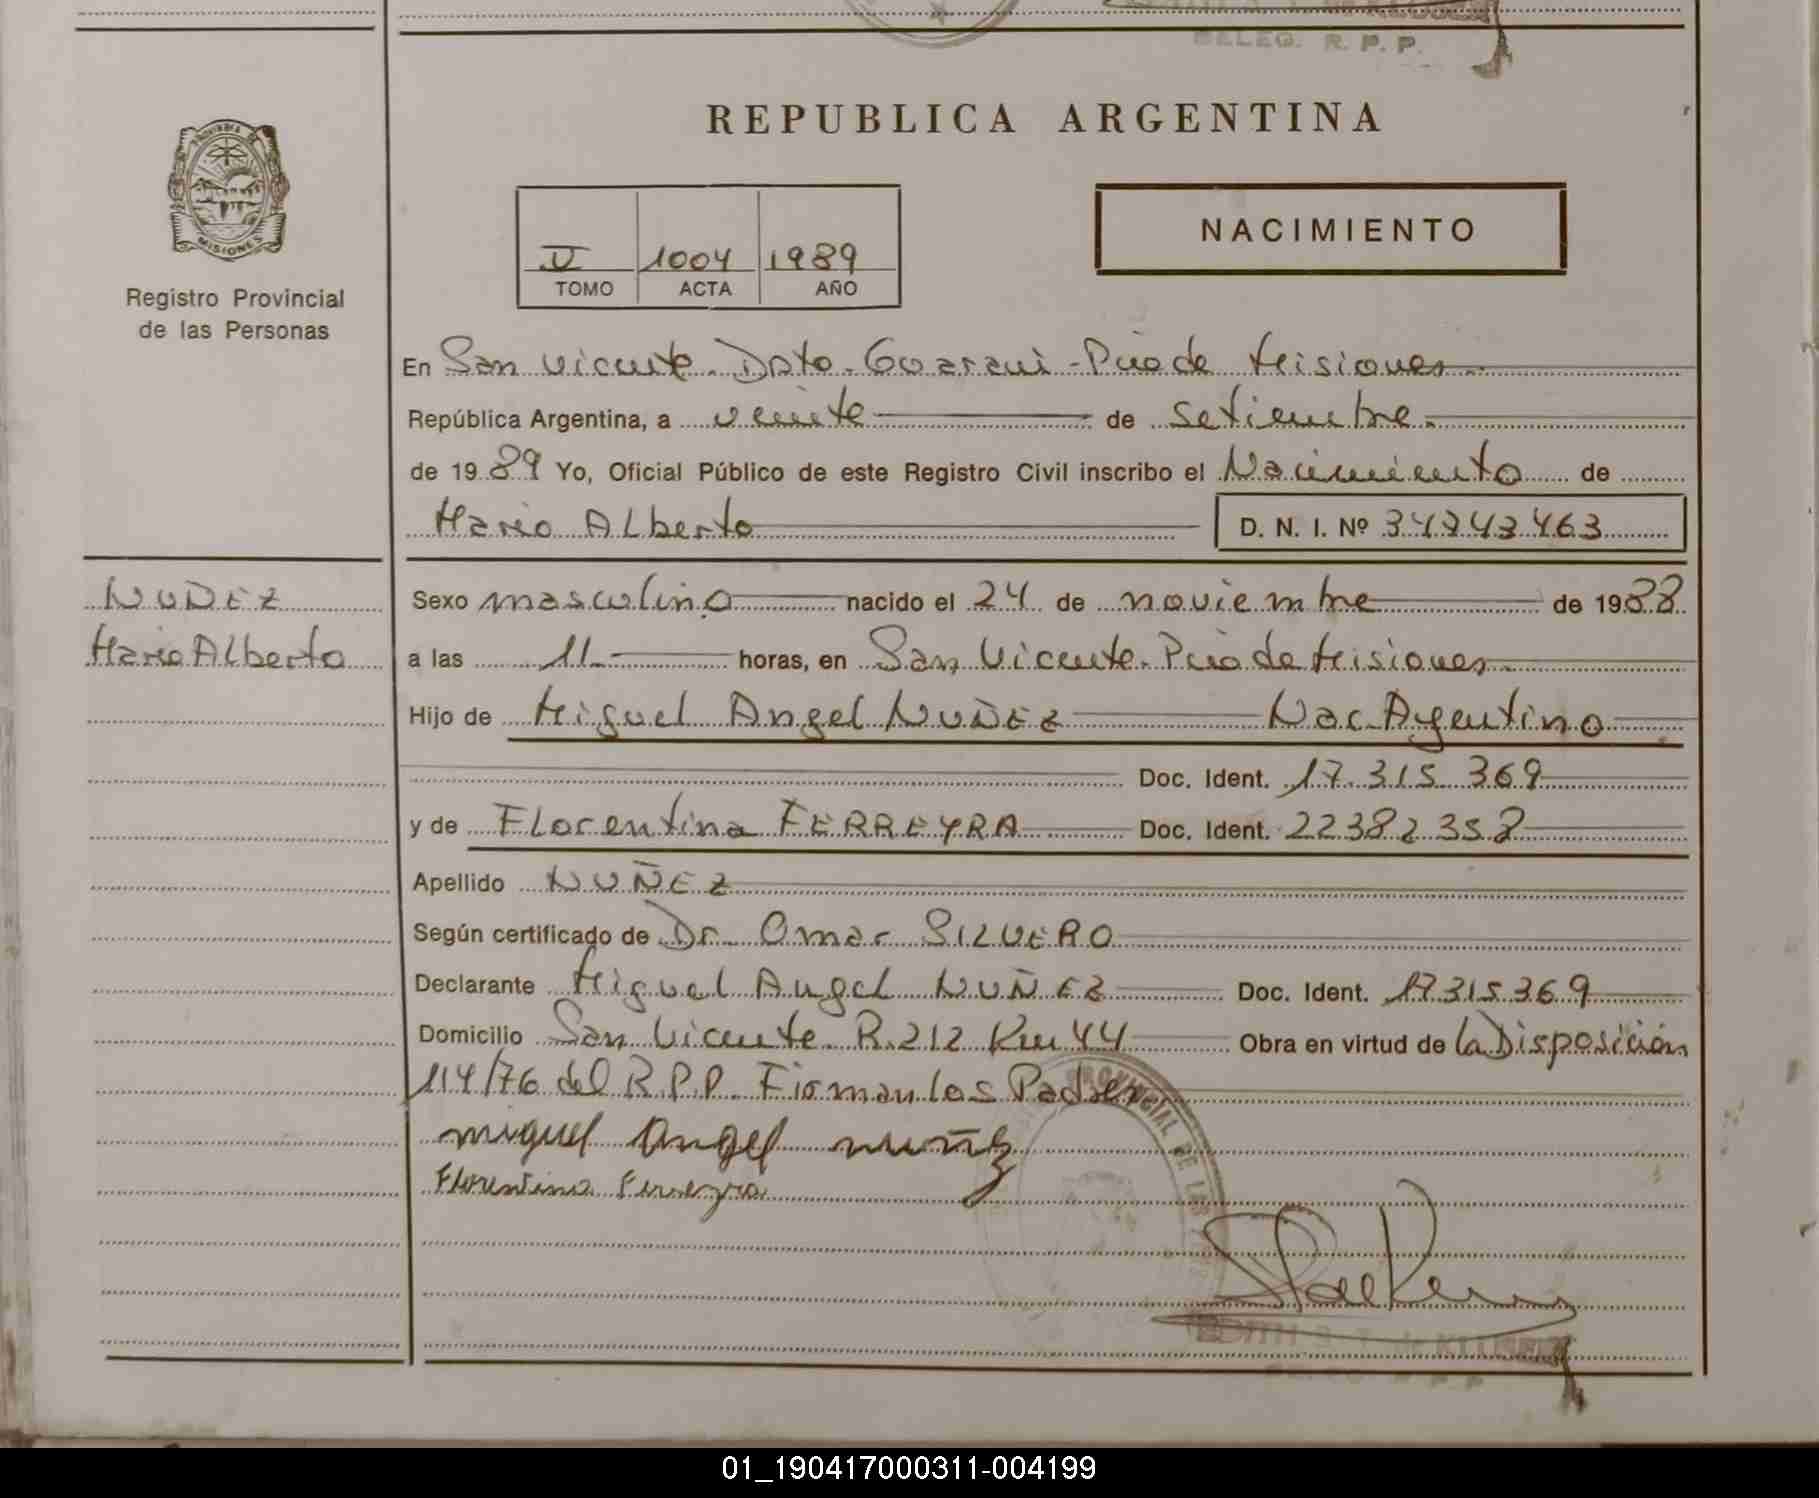 DELEG. R. P. P.
REPUBLICA ARGENTINA
PROVINCIA DE
MISIONES
Registro Provincial
de las Personas
V 1004 1989
TOMO ACTA AÑO
NACIMIENTO
En San Vicente. Dpto. Guaraní - Pcia de Misiones.
República Argentina, a veinte de setiembre.
de 1989 Yo, Oficial Público de este Registro Civil inscribo el Nacimiento de
Mario Alberto D. N. I. Nº
NUÑEZ
Mario Alberto
Sexo masculino nacido el 24 de noviembre de 1988
a las 11 horas, en San Vicente. Pcia de Misiones.
Hijo de Miguel Angel NUÑEZ Nac. Argentino
Doc. Ident. 17.315.369
y de Florentina FERREYRA Doc. Ident. 22382358
Apellido NUÑEZ
Según certificado de Dr. Omar SILVERO
Declarante Miguel Angel NUÑEZ Doc. Ident. 17315369
Domicilio San Vicente. R. 212 Km 44 Obra en virtud de la Disposición
114/76 del R.P.P. Firman los Padres
miguel Angel nuñez
Florentina Ferreyra
PROVINCIAL DE LAS
01_190417000311-004199